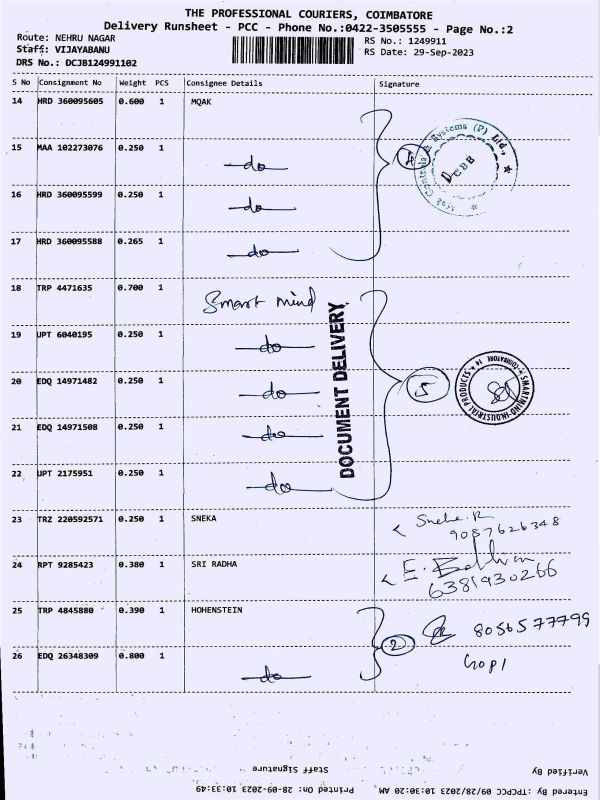 THE PROFESSIONAL COURIERS, COIMBATORE
Delivery Runsheet - PCC - Phone No.:0422-3505555 - Page No.:2
Route: NEHRU NAGAR
Staff: VIJAYABANU
DRS No.: DCJB124991102
RS No.: 1249911
RS Date: 29-Sep-2023
S No Consignment No Weight PCS Consignee Details Signature
14 HRD 360095605 0.600 1 MQAK
15 MAA 102273076 0.250 1 do
16 HRD 360095599 0.250 1 do
17 HRD 360095588 0.265 1 do
4
Systems (P) Ltd.,
18 TRP 4471635 0.700 1 Smart mind
19 UPT 6040195 0.250 1 do
20 EDQ 14971482 0.250 1 do
21 EDQ 14971508 0.250 1 do
22 UPT 2175951 0.250 1 do
DOCUMENT DELIVERY
5
SMARTMIND INDUSTRIAL PRODUCTS * COIMBATORE
23 TRZ 220592571 0.250 1 SNEKA Sneka.R
9087626348
24 RPT 9285423 0.380 1 SRI RADHA
6381930266
25 TRP 4845880 0.390 1 HOHENSTEIN 8056577799
2
Gopi
26 EDQ 26348309 0.800 1 do
Staff Signature
Verified By
Printed On: 28-09-2023 10:33:49
Entered By :TPCPCC 09/28/2023 10:30:20 AM